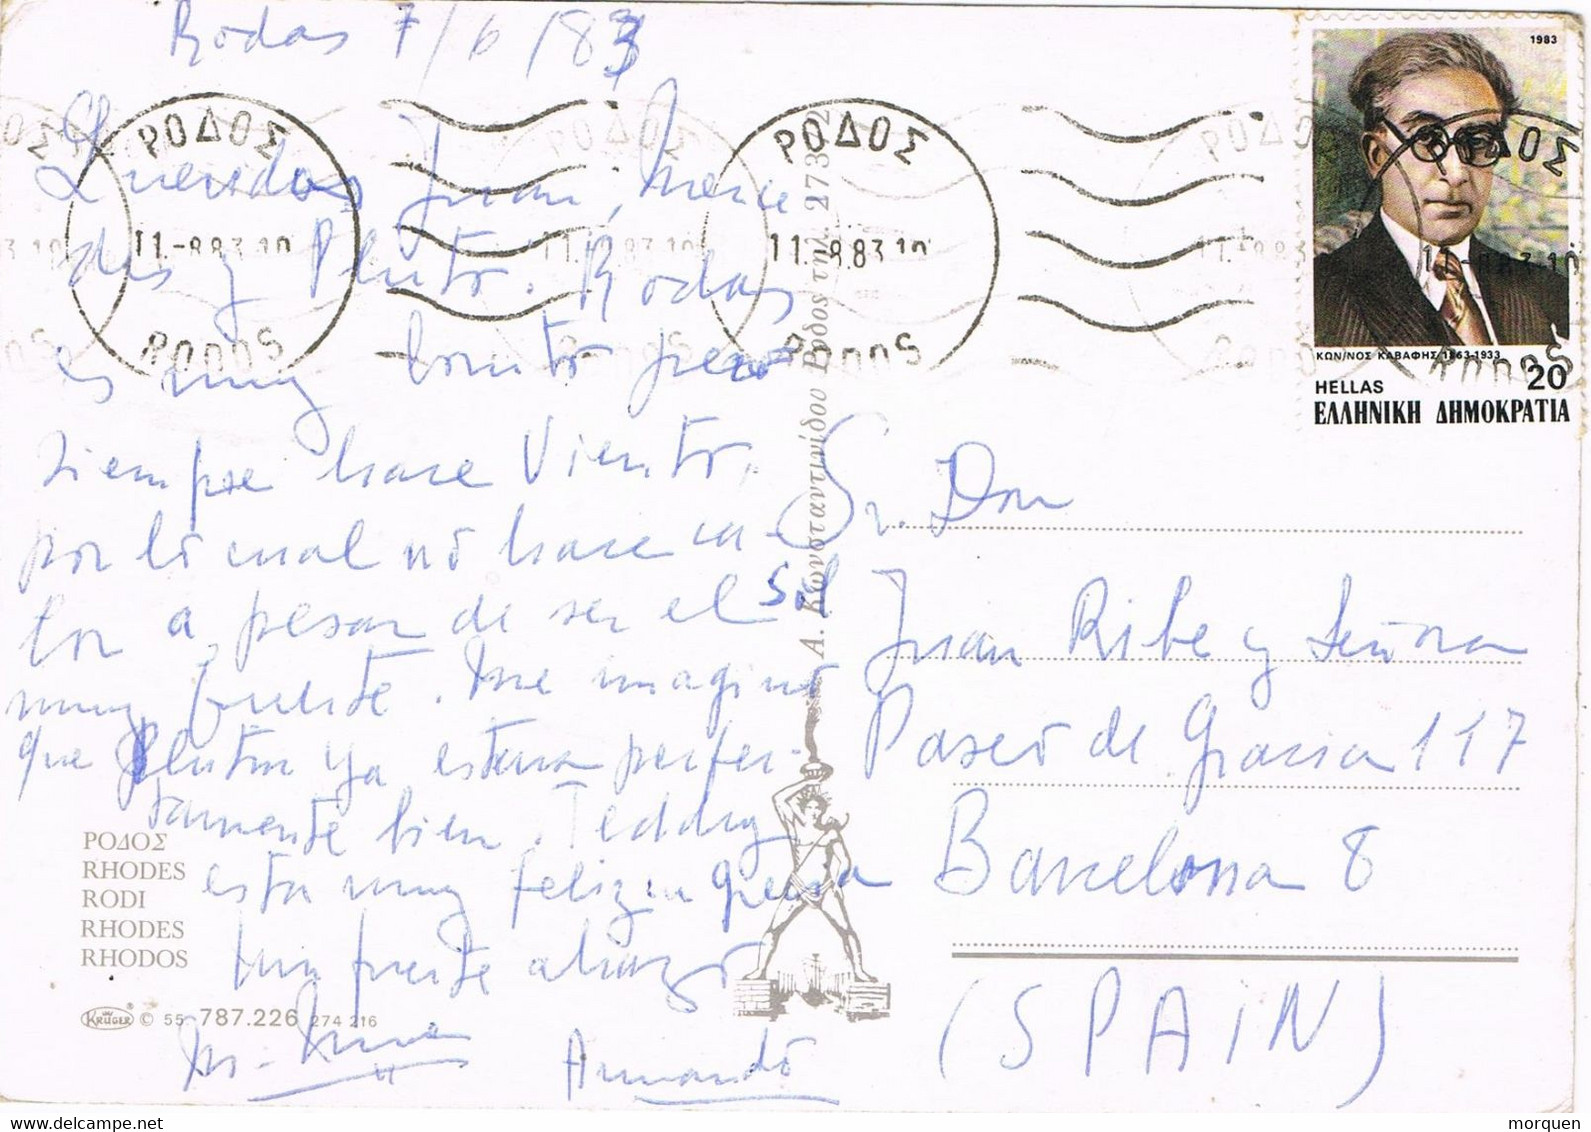 Rodas 7/6/83
Queridos Juan, Merce
des y Pluto. Rodas
es muy bonito pero
siempre hace viento,
por lo cual no hace ca-
lor a pesar de ser el sol
muy fuerte. Me imagino
que Pluton ya estara perfec-
tamente bien. Teddy
esta muy feliz en
Un fuerte abrazo
Armando
ΡΟΔΟΣ
RHODES
RODI
RHODES
RHODOS
KRÜGER ® © 55 787.226 274 216
ΡΟΔΟΣ
11.-8.83.10
RODOS
ΡΟΔΟΣ
11.-8.83.10
RODOS
Α. Κωνσταντινίδου Ρόδος τηλ. 273
1983
ΚΩΝ/ΝΟΣ ΚΑΒΑΦΗΣ 1863-1933
HELLAS 20
ΕΛΛΗΝΙΚΗ ΔΗΜΟΚΡΑΤΙΑ
Sr. Don
Juan Ribe y Señora
Paseo de Gracia 117
Barcelona 8
(SPAIN)
morquen